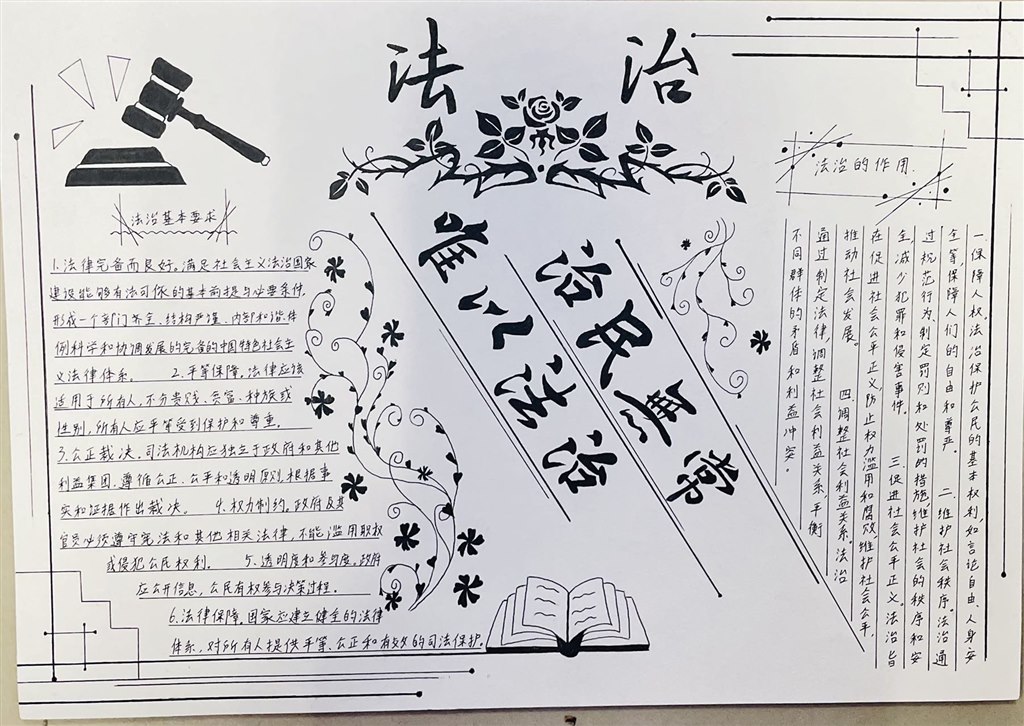 法治
法治基本要求
1.法律完备而良好。满足社会主义法治国家
建设能够有法司依的基本前提与必要条件,
形成一个部门齐全、结构严谨、内部和谐、体
例科学和协调发展的完备的中国特色社会主
义法律体系。 2.平等保障,法律应该
适用于所有人,不分贵贱、贫富、种族或
性别,所有人应平等受到保护和尊重。
3.公正裁决,司法机构应独立于政府和其他
利益集团、遵循公正、公平和透明原则,根据事
实和证据作出裁决。 4.权力制约,政府及其
官员必须遵守宪法和其他相关法律,不能滥用职权
或侵犯公民权利。 5.透明度和参与度,政府
应公开信息,公民有权参与决策过程。
6.法律保障,国家应建立健全的法律
体系,对所有人提供平等、公正和有效的司法保护。
治民无常
唯以法治
法治的作用.
一保障人权,法治保护公民的基本权利,如言论自由、人身安
全等,保障人们的自由和尊严。 二、维护社会秩序。法治通
过规范行为、制定罚则和处罚的措施,维护社会的秩序和安
全,减少犯罪和侵害事件。 三促进社会公平正义。法治旨
在促进社会公平正义,防止权力滥用和腐败,维护社会公平,
推动社会发展。 四调整社会利益关系,法治
通过制定法律,调整社会利益关系,平衡
不同群体的矛盾和利益冲突。